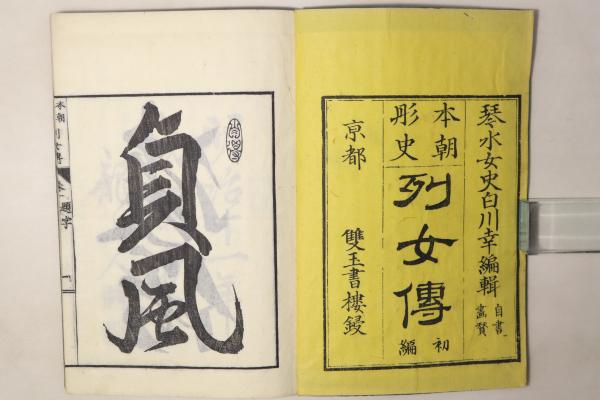 琴水女史白川幸編輯
自書
畫賛
本朝
彤史
列女傳
初編
京都
雙玉書樓鋟
貞風
本朝列女傳
卷一
題字
一